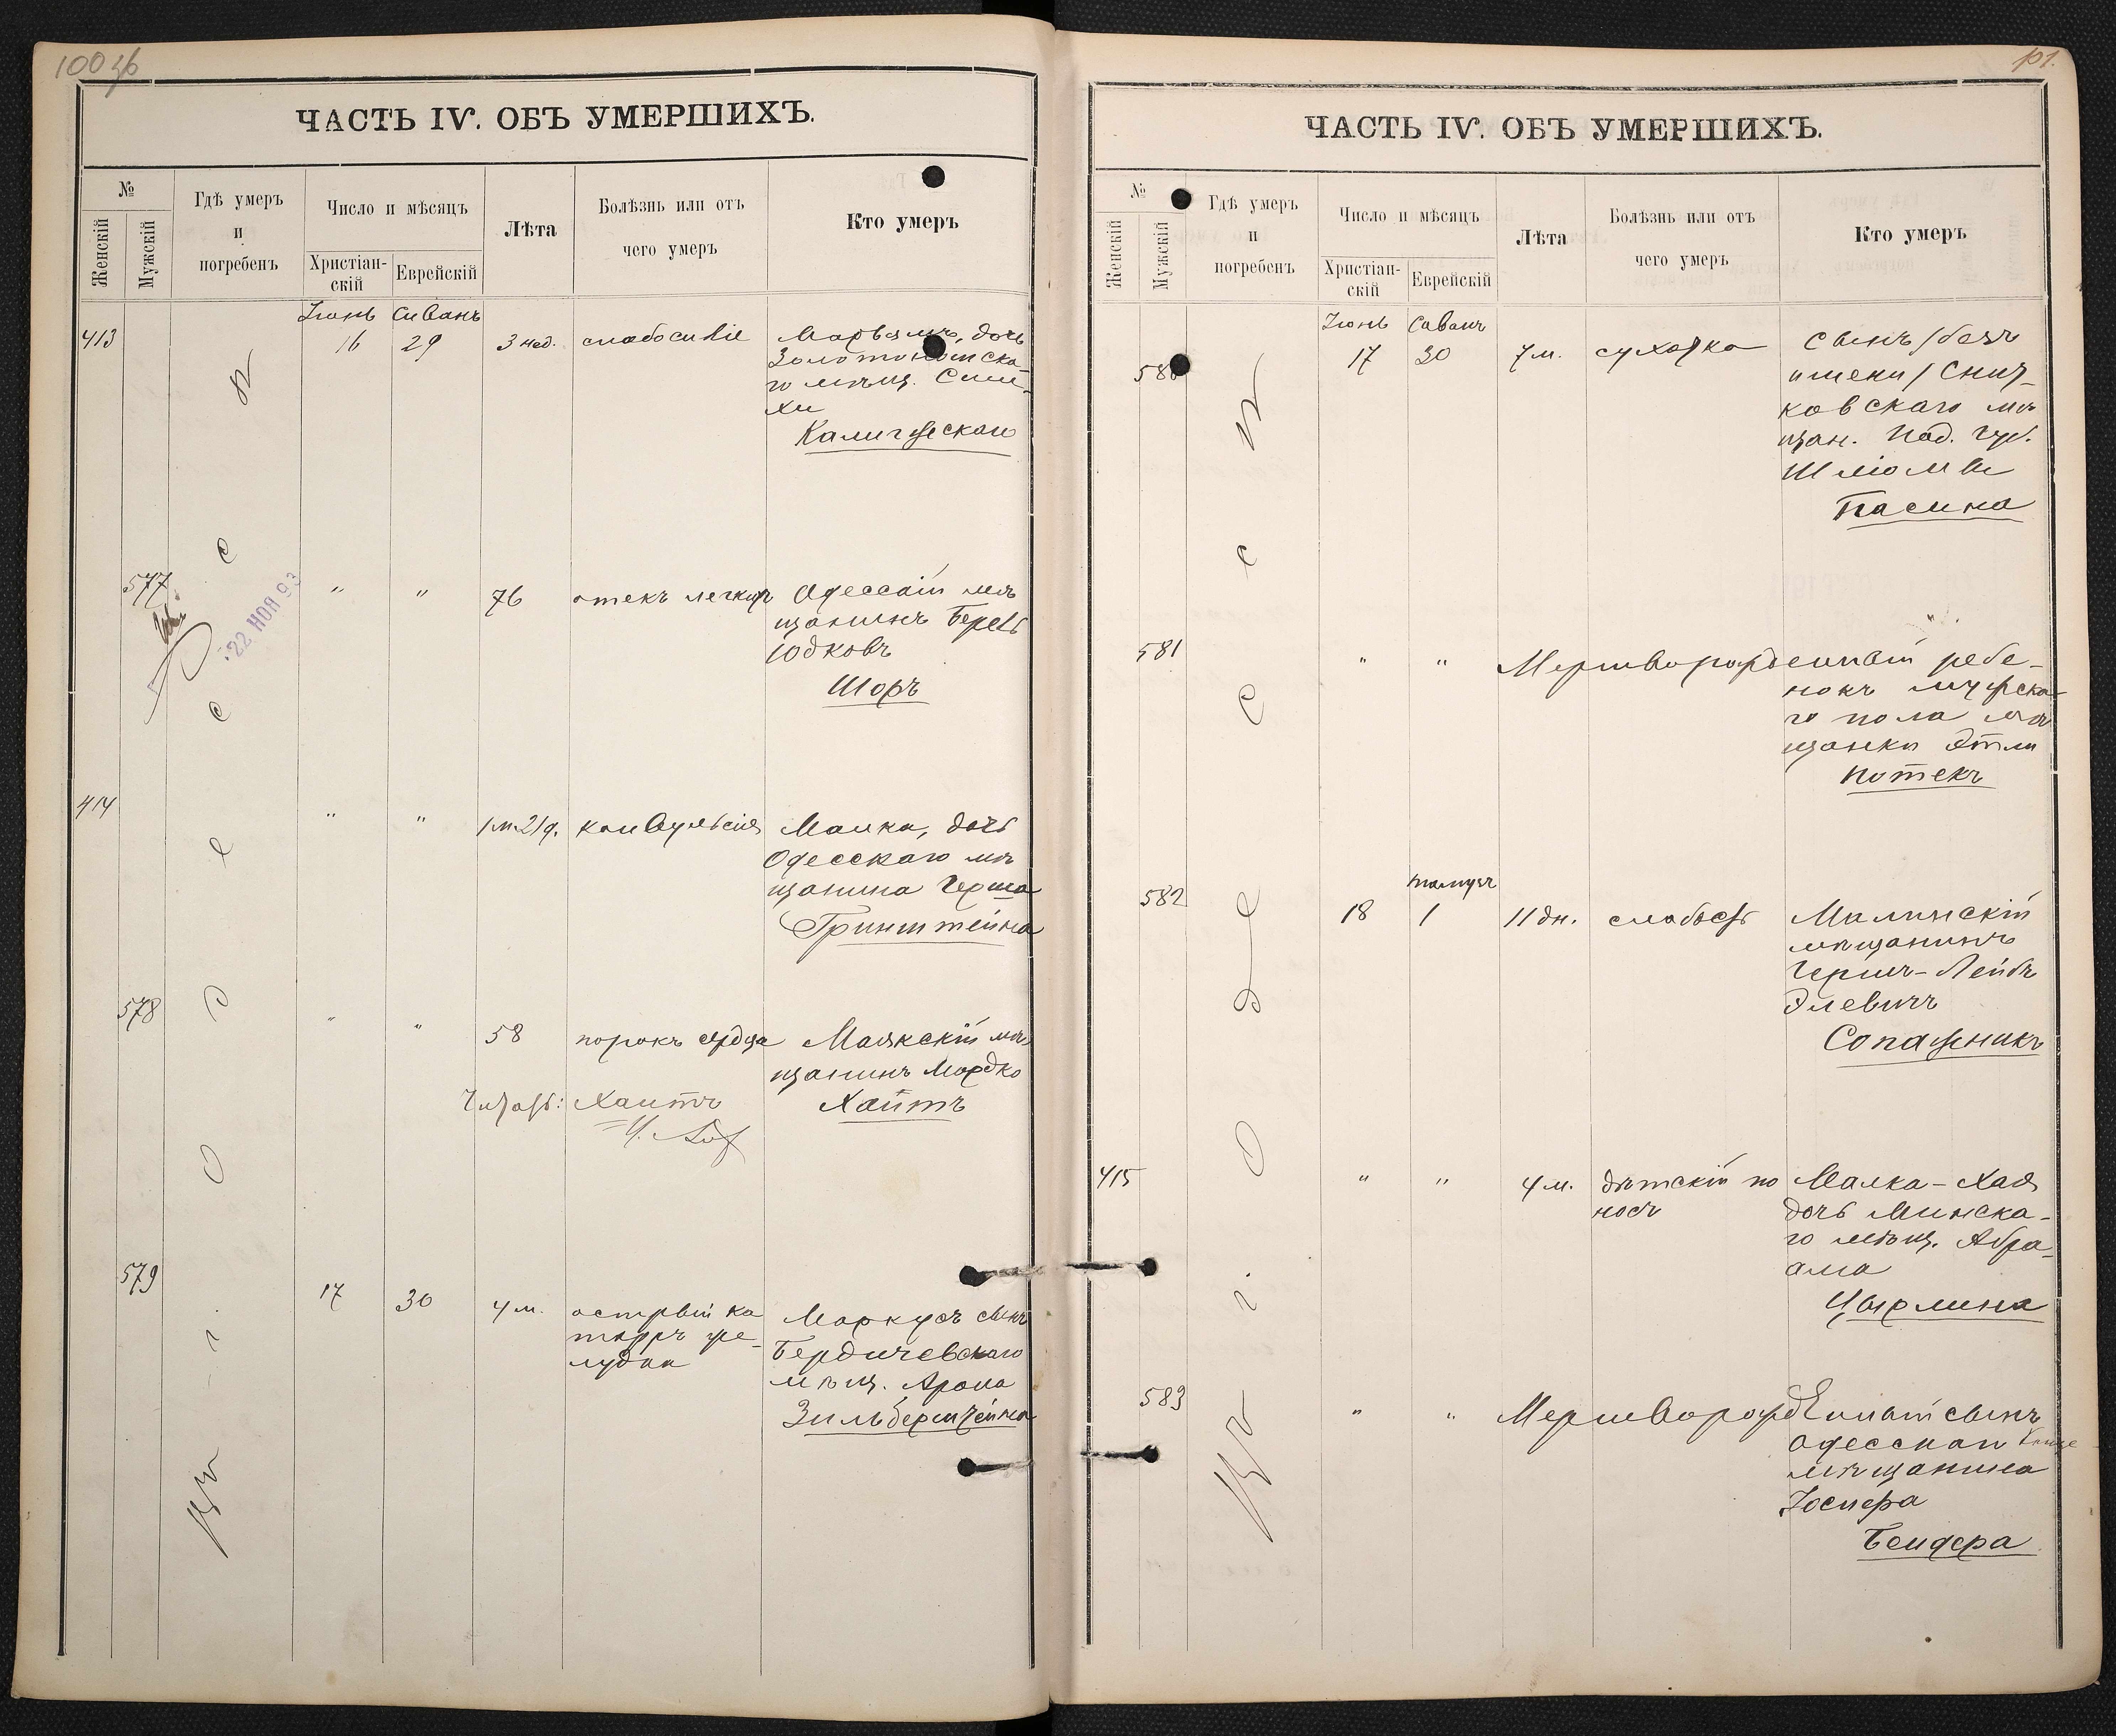 100 об
ЧАСТЬ IV. ОБЪ УМЕРШИХЪ.
№
Женскій
Мужскій
Гдѣ умеръ
и
погребенъ
Число и мѣсяцъ
Христіан-
скій
Еврейскій
Лѣта
Болѣзнь или отъ
чего умеръ
Кто умеръ
Іюнь Сиванъ
413 16 29 3 нед. слабосиліе Марьямъ, дочь
Золотоношска-
го мѣщ. Сим-
хи
Калигорскаго
577 " " 76 отекъ легкихъ Одесскій мѣ
щанинъ Беръ
Юдковъ
Шоръ
22 НОЯ 93
414 " " 1 м. 21 д. конвульсія Малка, дочь
Одесскаго мѣ
щанина Герша
Гринштейна
578 " " 58 порокъ сердца Маякскій мѣ
щанинъ Мордко
Хаитъ
Читать: Хаитъ
579 17 30 4 м. острый ка
тарръ же-
лудка
Маркусъ сынъ
Бердичевскаго
мѣщ. Арона
Зильберштейна
въ г. Одессѣ
101.
ЧАСТЬ IV. ОБЪ УМЕРШИХЪ.
№
Женскій
Мужскій
Гдѣ умеръ
и
погребенъ
Число и мѣсяцъ
Христіан-
скій
Еврейскій
Лѣта
Болѣзнь или отъ
чего умеръ
Кто умеръ
Іюнь Сиванъ
580 17 30 7 м. сухотка сынъ /безъ
имени/ Сниt-
ковскаго мѣ
щан. Под. губ.
Шлиомы
Пасина
581 " " Мертворожденный ребе-
нокъ мужска-
го пола мѣ
щанки Этли
Потекъ
Тамузъ
582 18 1 11 дн. слабость
мѣщанинъ
Гершъ-Лейбъ
Элевичъ
Сапожникъ
415 " " 4 м. дѣтскій по
носъ
Малка-Хая
дочь Минска-
го мѣщ. Абра-
ама
Цырлина
583 " " Мертворожденный сынъ
Одесскаго
мѣщанина
Іосифа
Бендера
въ г. Одессѣ